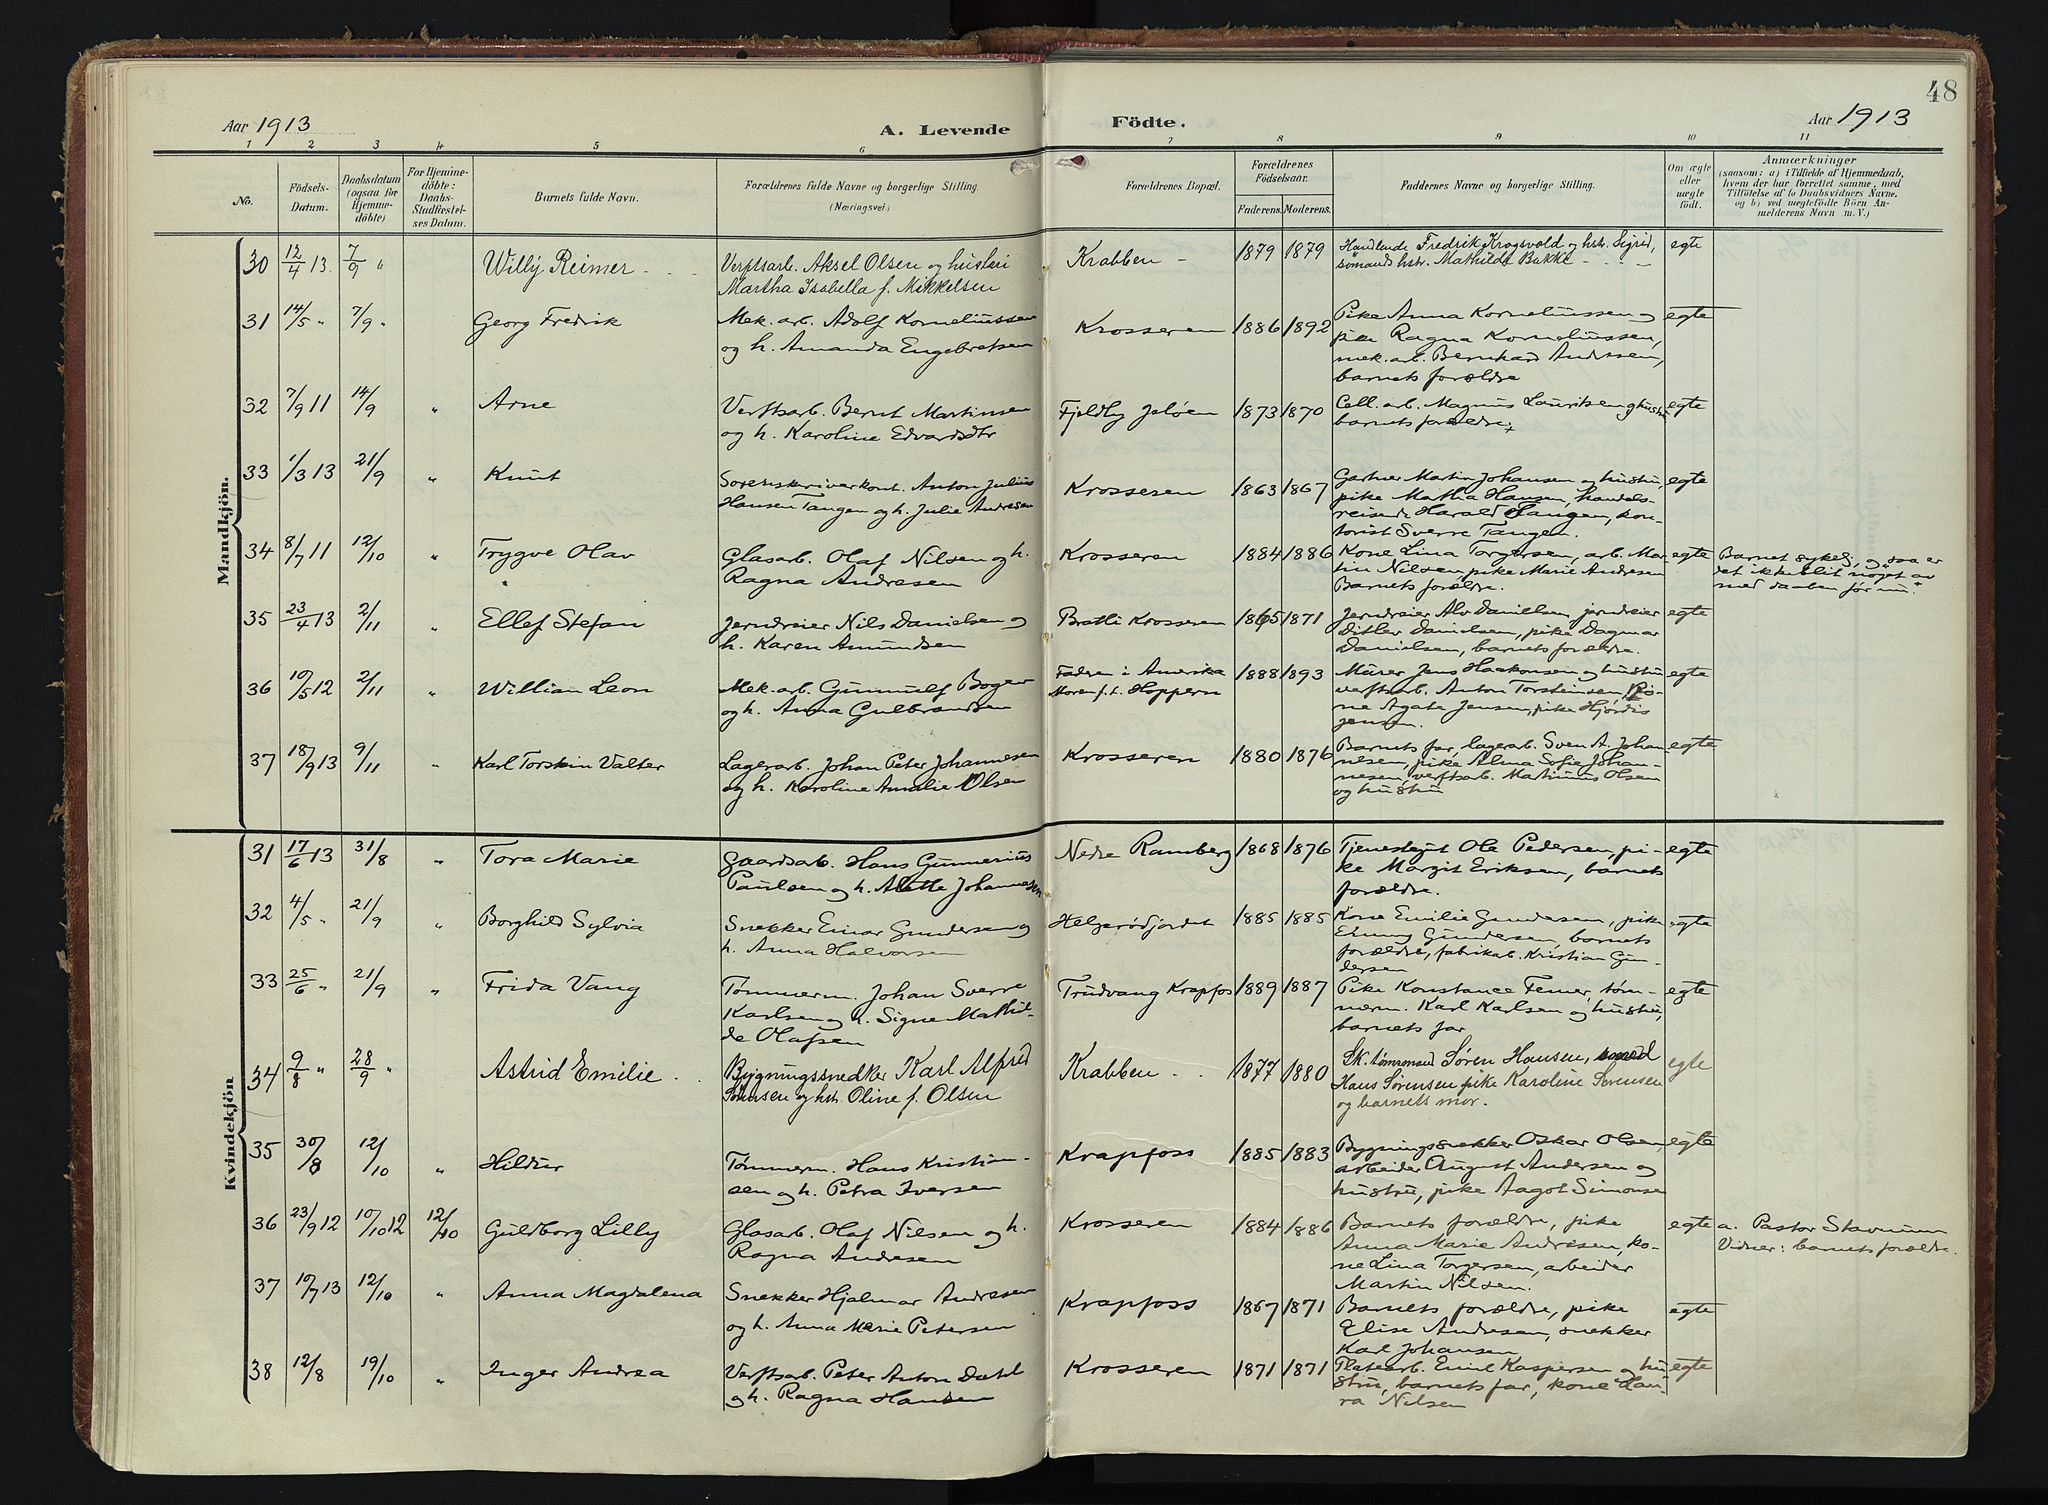 48
Aar 1913
A. Levende Födte.
Aar 1913
1 2 3 4 5 6 7 8 9 10 11
No.
Födsels-
Datum.
Daabsdatum
(ogsaa for
Hjemme-
döbte)
For Hjemme-
döbte:
Daabs-
Stadfæstel-
ses Datum.
Barnets fulde Navn.
Forældrenes fulde Navne og borgerlige Stilling.
(Næringsvei.)
Forældrenes Bopæl.
Forældrenes
Födselsaar.
Faderens. Moderens.
Faddernes Navne og borgerlige Stilling.
Om ægte
eller
uægte
født.
Anmærkninger
(saasom: a) i Tilfælde af Hjemmedaab,
hvem der har forrettet samme, med
Tilföielse af to Daabsvidners Navne.
og b) ved uægtefödte Börn An-
melderens Navn m. V.)
Mandkjön.
30 12/4 13. 7/9 " Willy Reimer
Verftsarb. Aksel Olsen og hustru
Martha Isabella f. Mikkelsen
Krabben - 1879 1879
Handlende Fredrik Krogsvold og hstr. Sigrid,
sømands hstr. Mathilde Bukke
egte
31 14/5 " 7/9 " Georg Fredrik
Mek. arb. Adolf Korneliussen
og h. Amanda Engebretsen
Krosseren 1886 1892
Pike Anna Korneliussen og
pike Ragna Korneliussen,
mek. arb. Bernhard Andresen,
barnets forældre
egte
32 7/9 11 14/9 " Arne
Verftsarb. Bernt Martinsen
og h. Karoline Edvardsdtr
Fjeldly Jeløen 1873 1870
Cell. arb. Magnus Lauritsen og hustru
barnets forældre
egte
33 1/3 13 21/9 " Knut
Sorenskriverkont. Anton Julius
Hansen Tangen og h. Julie Andresen
Krosseren 1863 1867
Gartner Martin Johansen og hustru
pike Martha Hansen, handels-
reisende Harald Tangen, kon-
torist Sverre Tangen.
egte
34 8/7 11 12/10 " Trygve Olav
Glasarb. Olaf Nilsen og h.
Ragna Andresen
Krosseren 1884 1886
Kone Lina Torgersen, arb. Mar
tin Nilsen pike Marie Andresen
Barnets forældre.
egte
Barnet sykelig, og saa er
det ikke blit noget av
med daaben før nu.
35 23/4 13 2/11 " Ellef Stefan
Jerndreier Nils Danielsen og
h. Karen Amundsen
Bratli Krosseren 1865 1871
Jerndreier Alv Danielsen, jerndreier
Ditlev Danielsen, pike Dagmar
Danielsen, barnets forældre.
egte
36 10/5 12 2/11 " William Leon
Mek. arb. Gunnulf Boger
og h. Anna Gulbrandsen
Faderen i Amerika
Moren f.t. Hoppern
1888 1893
Murer Jens Haakonsen og hustru
verftsarb. Anton Torsteinsen, Ko-
ne Agate Jensen, pike Hjørdis
Jensen.
egte
37 18/9 13 9/11 " Karl Torstein Valter
Lagerarb. Johan Peter Johannesen
og h. Karoline Amalie Olsen
Krosseren 1880 1876
Barnets far, lagerarb. Sven A. Johan
nesen, pike Alma Sofie Johan-
nesen, verftsarb. Martinius Olsen
og hustru
egte
Kvindekjön
31 17/6 13 31/8 " Tora Marie
Gaardsarb. Hans Gunnerius
Paulsen og h. Alette Johannesen
Nedre Ramberg 1868 1876
Tjenestegut Ole Pedersen, pi-
ke Margit Eriksen, barnets
forældre.
egte
32 4/5 " 21/9 " Borghild Sylvia
Snekker Einar Gundersen og
h. Anna Halvorsen
Helgerødjordet 1885 1885
Kone Emilie Gundersen, pike
Gundersen, barnets
forældre, fabrikarb. Kristian Gun-
dersen
egte
33 25/6 " 21/9 " Frida Vang
Tømmerm. Johan Sverre
Karlsen og h. Signe Mathil-
de Olafsen
Trudvang Krapfos 1889 1887
Pike Konstance Femer, tøm-
merm. Karl Karlsen og hustru,
barnets far
egte
34 9/8 " 28/9 " Astrid Emilie
Bygningssnedker Karl Alfred
Sørensen og hstr. Oline f. Olsen
Krabben 1877 1880
Sk. tømmermand Søren Hansen, smed
Hans Sørensen pike Karoline Sørensen
og barnets mor.
egte
35 30/8 12/10 " Hildur
Tømmerm. Hans Kristian-
sen og h. Petra Iversen
Krapfoss 1885 1883
Bygningssnekker Oskar Olsen,
arbeider August Andersen og
hustru, pike Aagot Simonsen
egte
36 23/9 12 10/10 12 12/10 Guldborg Lilly
Glasarb. Olaf Nilsen og h.
Ragna Andresen
Krosseren 1884 1886
Barnets forældre, pike
Anna Marie Andresen, ko-
ne Lina Torgersen, arbeider
Martin Nilsen.
egte
a. Pastor Stavnum
Vidner: barnets forældre.
37 10/7 13 12/10 " Anna Magdalena
Snekker Hjalmar Andresen
og h. Anna Marie Petersen
Krapfoss 1867 1871
Barnets forældre, pike
Elise Andresen, snekker
Karl Johansen
egte
38 12/8 19/10 " Inger Andrea
Verftsarb. Peter Anton Dahl
og h. Ragna Hansen
Krosseren 1871 1871
Platearb. Emil Kaspersen og hu
stru, barnets far, kone Lau-
ra Nilsen
egte